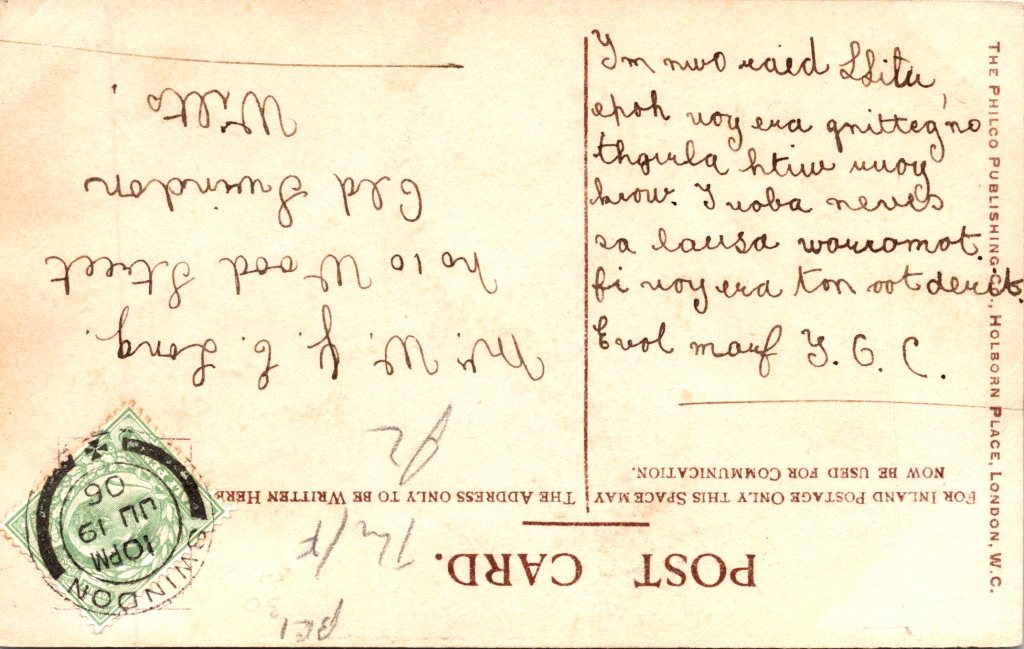 POST CARD.
FOR INLAND POSTAGE ONLY THIS SPACE MAY
NOW BE USED FOR COMMUNICATION.
THE ADDRESS ONLY TO BE WRITTEN HERE
Ym nwo raed
epoh uoy era gnitteg no
thgirla htiw ruoy
krow. I neves
sa lausu worromot.
fi uoy era ton oot derit.
Evol morf Y. G. C.
Mr. W. J. E. Long.
No 10 Wood Street
Old Swindon
Wilts.
SWINDON
10PM
JU 19
06
THE PHILCO PUBLISHING CO., HOLBORN PLACE, LONDON, W.C.